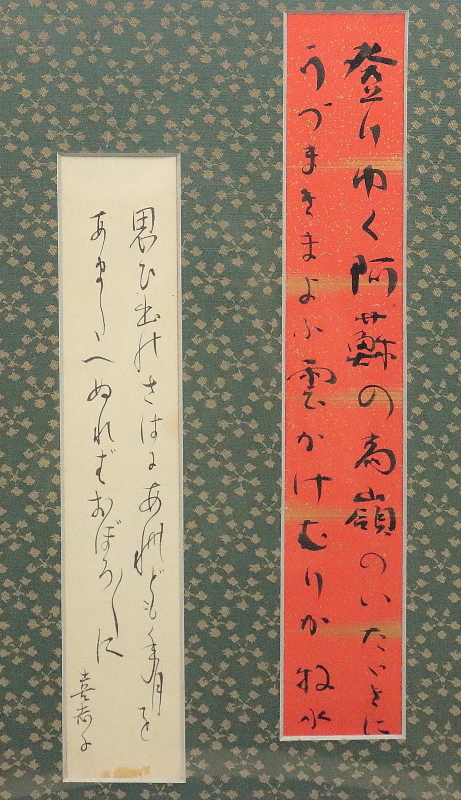 登りゆく阿蘇の高嶺のいただきに
うづまきまよふ雲かけむりか 牧水
思ひ出のさはにあれども年月を
あまたへぬればおぼろ〱に
喜志子